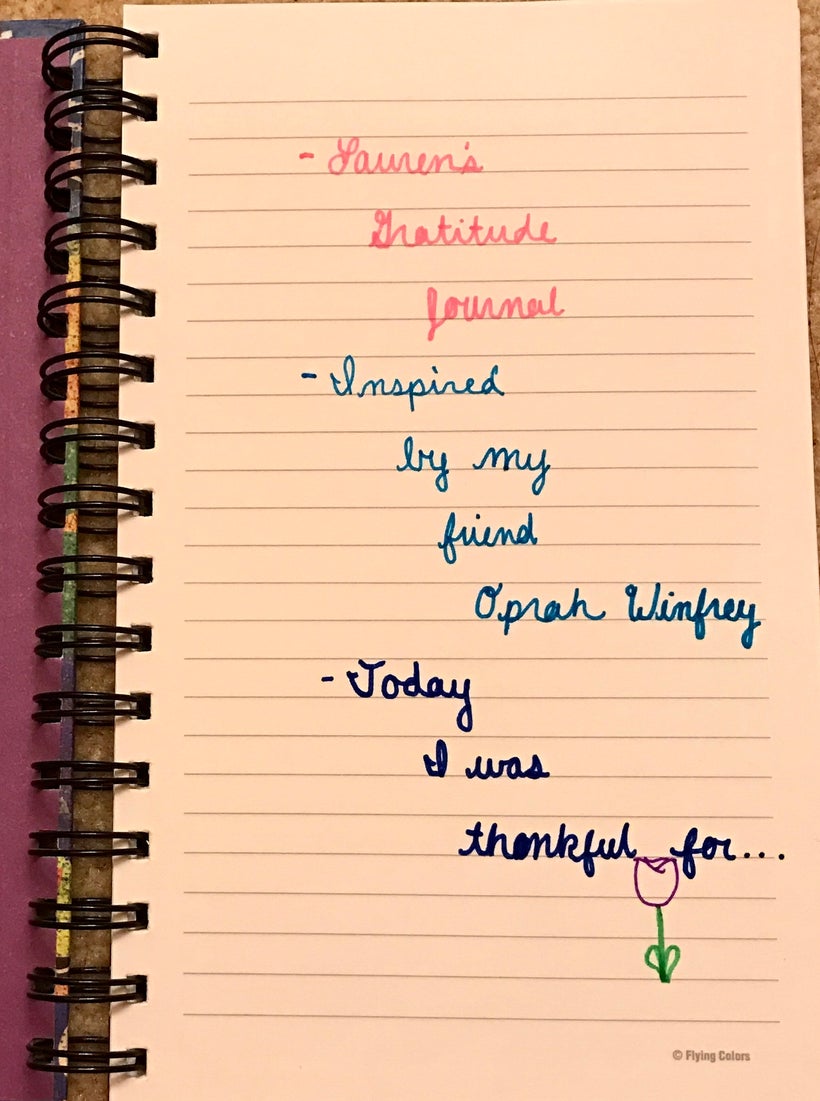 - Lauren's
Gratitude
Journal
- Inspired
by my
friend
Oprah Winfrey
- Today
I was
thankful for...
© Flying Colors